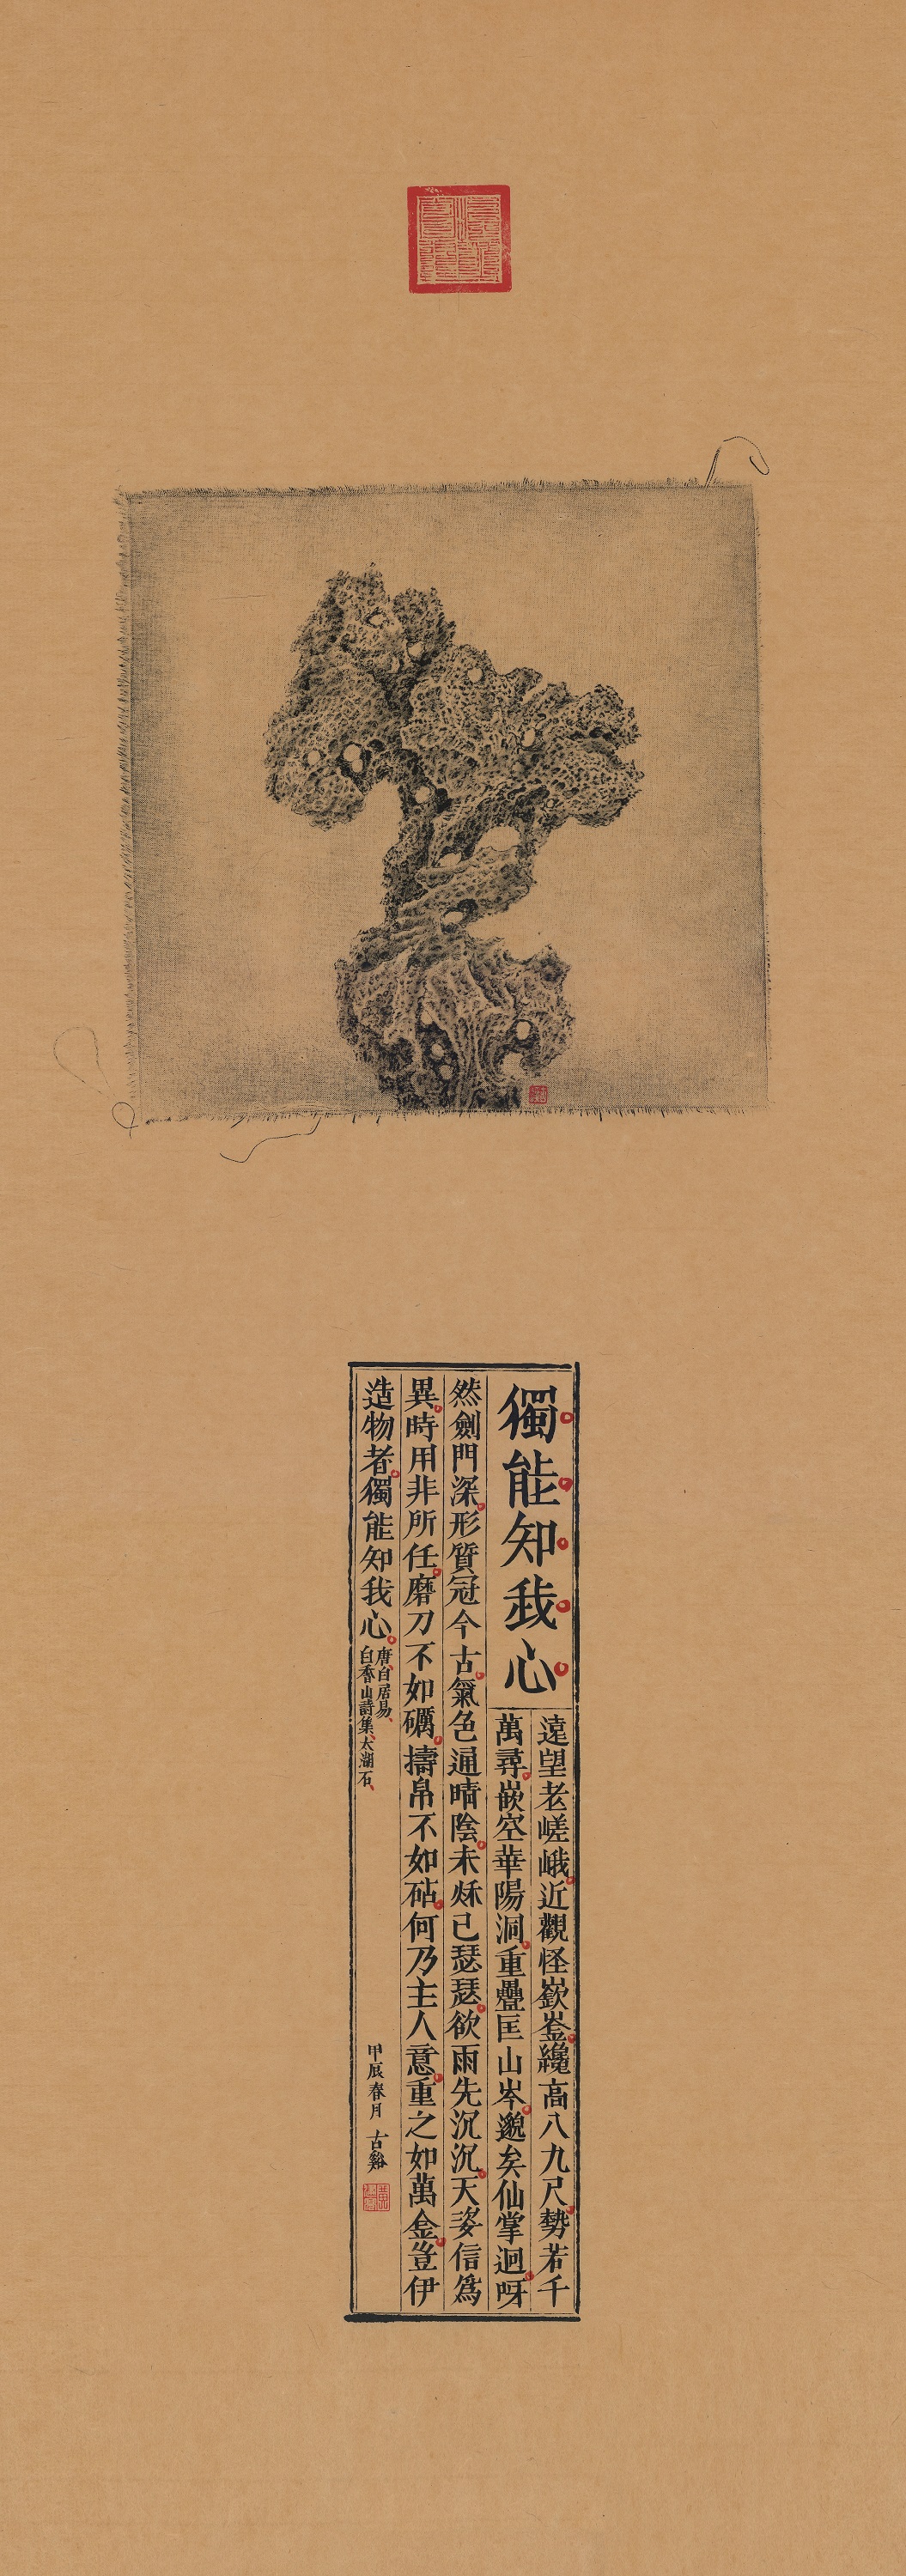 獨能知我心
遠望老嵯峨近觀怪嶔崟纔高八九尺勢若千
萬尋嵌空華陽洞重疊匡山岑邈矣仙掌迥呀
然劍門深形質冠今古氣色通晴陰未秌已瑟瑟欲雨先沉沉天姿信爲
異時用非所任磨刀不如礪擣帛不如砧何乃主人意重之如萬金豈伊
造物者獨能知我心
唐白居易
白香山詩集太湖石
甲辰春月 古谿